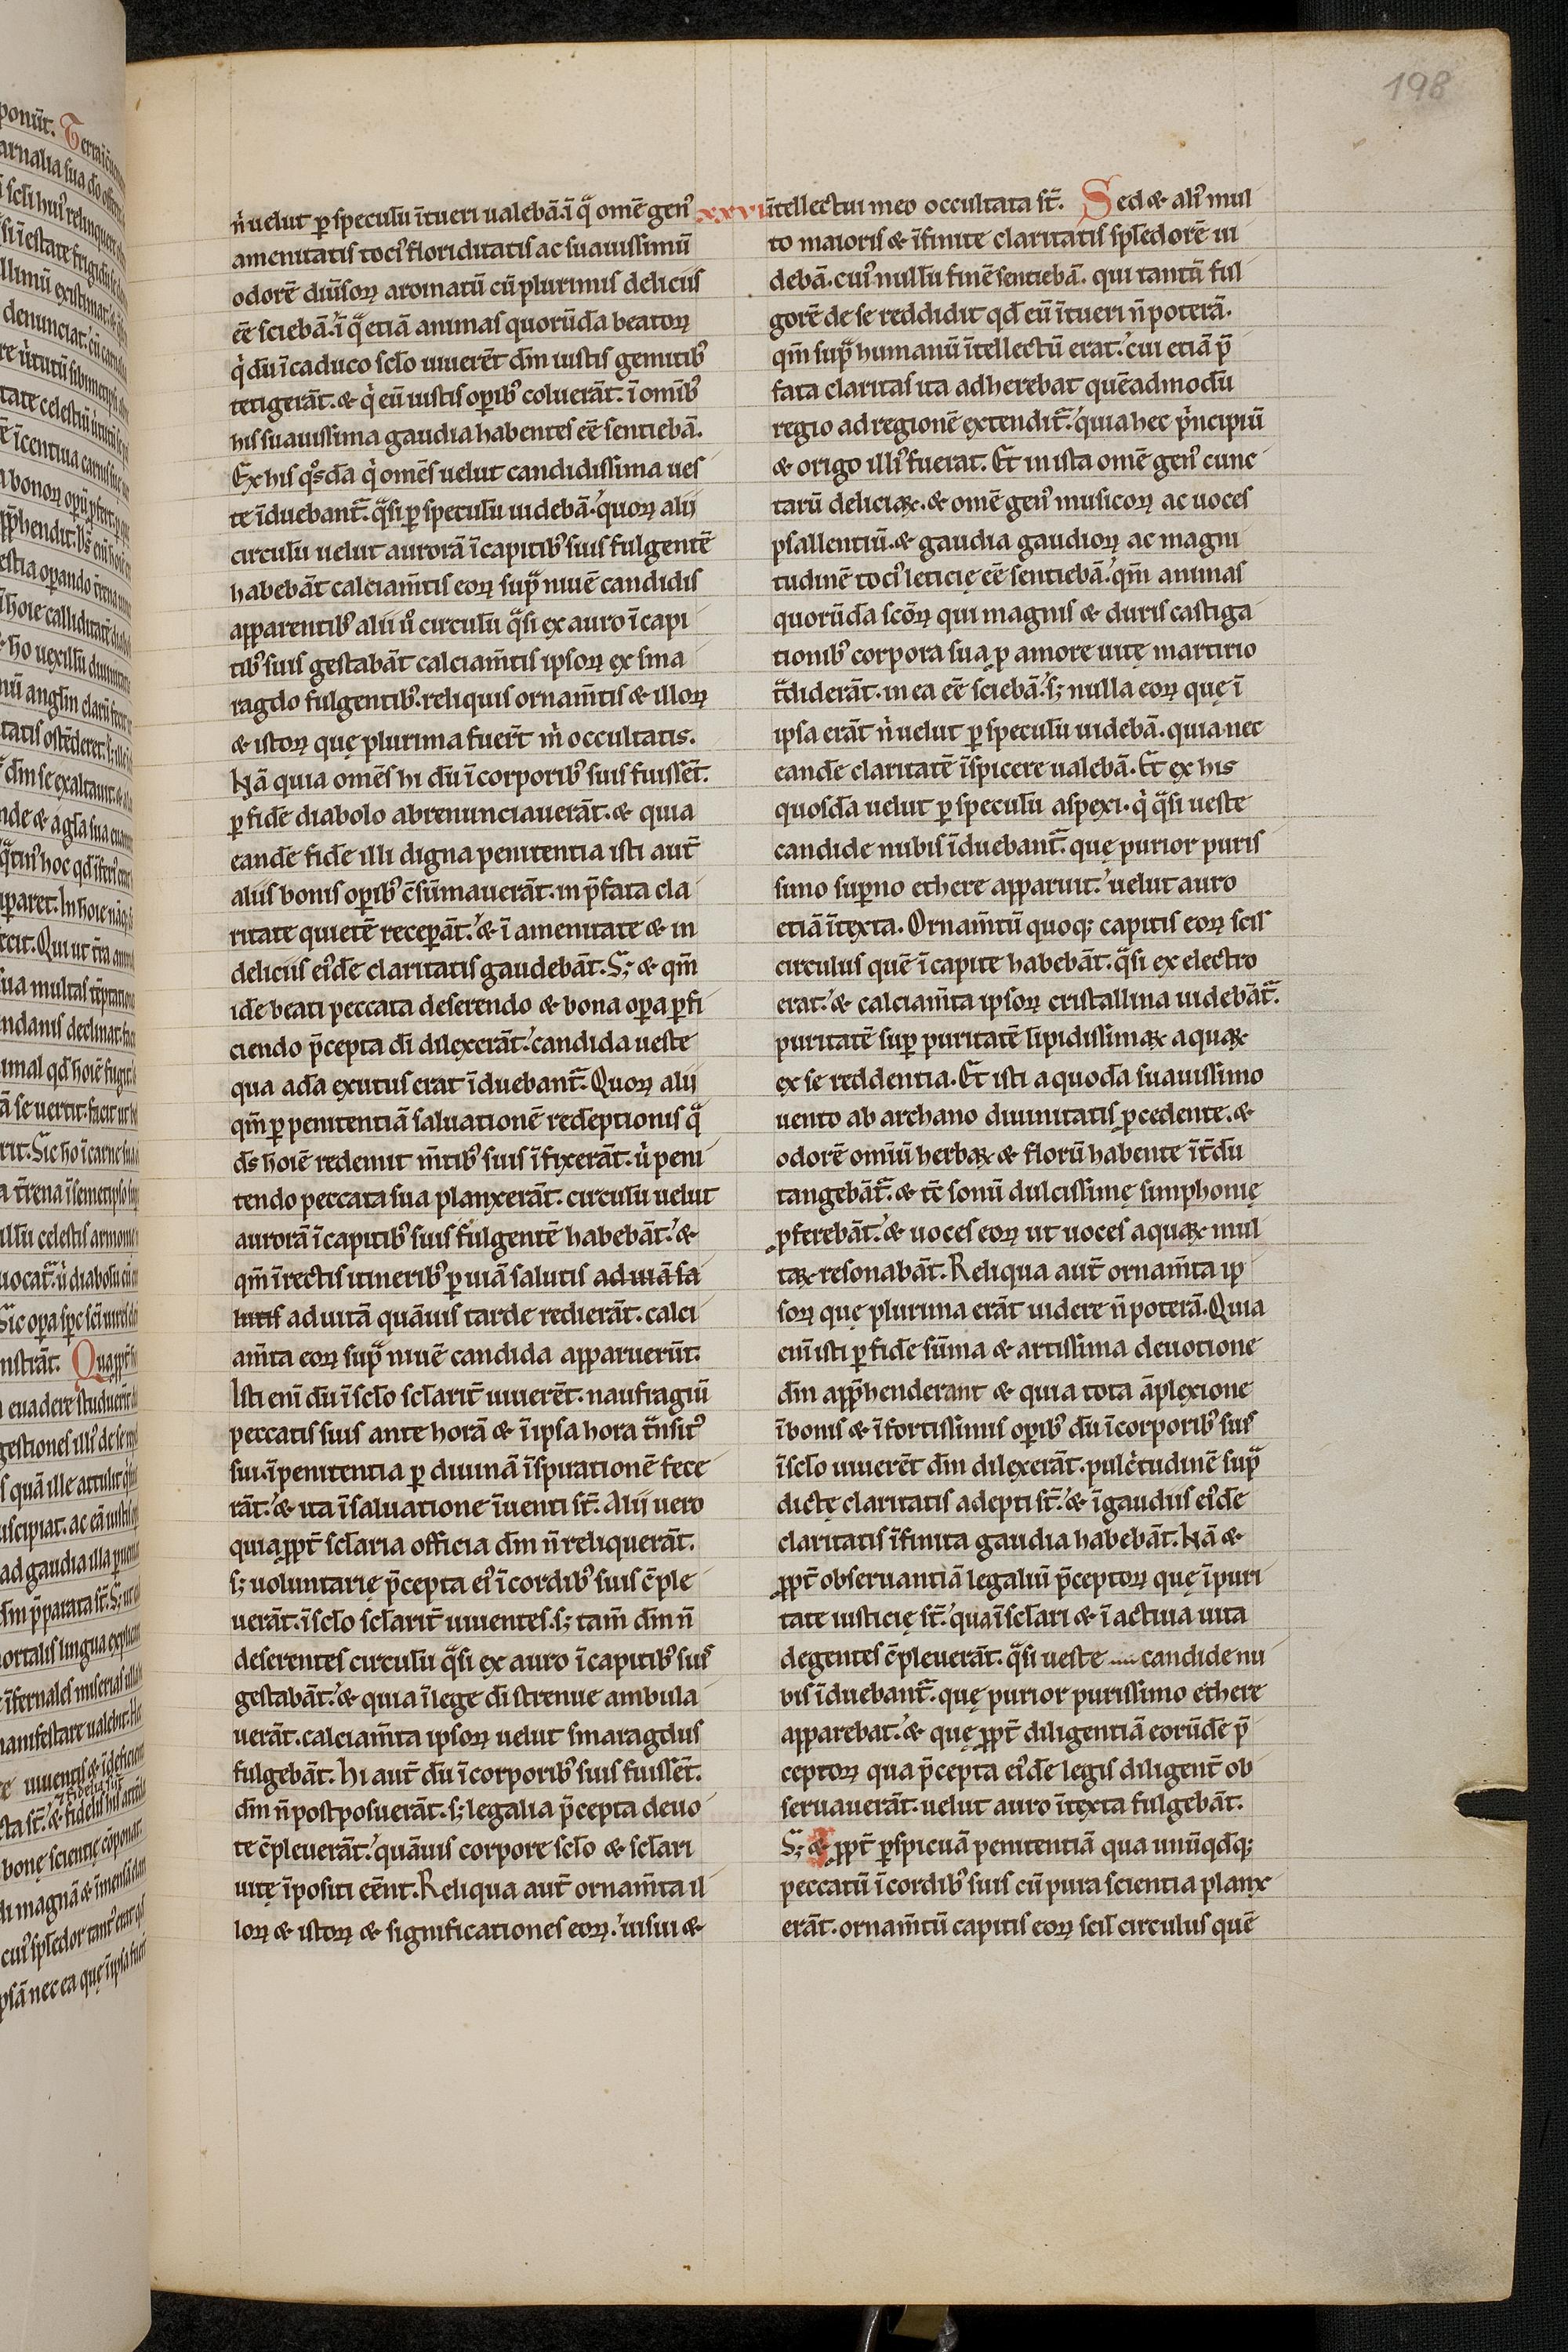 198
n̉ uelut ꝑ speculū ītueri ualebā. ī qͣ omē genꝰ
amenitatis tociꝰ floriditatis ac suauissimū
odorē diu̅soꝝ aromatū cū plurimis deliciis
eē sciebā.' ī qͣ etiā animas quorūdā beatoꝝ
q̉ dū ī caduco sc̄lo uiuerēt dn̄m iustis gemitibꝰ
tetigerāt. & q̉ eū iustis oꝑibꝰ coluerāt. ī om̄ibꝰ
his suauissima gaudia habentes eē sentiebā.
Ex his qͦsdā q̉ omēs uelut candidissima ues
te īduebant᷑. qͣsi ꝑ speculū uidebā.' quoꝝ alij
circulū uelut aurorā ī capitibꝰ suis fulgentē
habebāt calciam̄tis eoꝝ supͣ niuē candidis
apparentibꝰ alii ů circulū qͣsi ex auro ī capi
tibꝰ suis gestabāt calciam̄tis ipsoꝝ ex sma
ragdo fulgentibꝰ. reliquis ornam̄tis & illoꝝ
& istoꝝ quę plurima fuer̄t m̉ occultatis.
Nā quia omēs hi dū ī corporibꝰ suis fuissēt.
ꝑ fidē diabolo abrenunciauerāt. & quia
eandē fidē illi digna penitentia isti aut̄
aliis bonis oꝑibꝰ c̄sūmauerāt. in p̄fata cla
ritate quietē receꝑāt.' & ī amenitate & in
deliciis eiꝰdē claritatis gaudebāt. S; & qm̄
idē beati peccata deserendo & bona oꝑa ꝑfi
ciendo p̄cepta dī dilexerāt.' candida ueste
qua adā exutus erat īduebant᷑. Quoꝝ alij
qm̄ ꝑ penitentiā saluationē redēptionis qͣ
ds̄ hoīē redemit m̄tibꝰ suis īfixerāt. u̍ peni
tendo peccata sua planxerāt. circulū uelut
aurorā ī capitibꝰ suis fulgentē habebāt.' &
qm̄ ī rectis itineribꝰ ꝑ uiā salutis ad uiā sa
lutis ad uitā quāuis tarde redierāt. calci
am̄ta eoꝝ supͣ niuē candida apparuerūt.
Isti eni dū ī sc̄lo sc̄larit̄ uiuerēt. naufragiū
peccatis suis ante horā & ī ipsa hora tͣnsitꝰ
sui. ī penitentia ꝑ diuinā īspirationē fece
rāt.' & ita ī saluatione īuenti st̄. Alij uero
quia ꝓpt̄ sc̄laria officia dn̄m n̄ reliquerāt.
s; uoluntarię p̄cepta eiꝰ ī cordibꝰ suis c̄ple
uerāt. ī sc̄lo sc̄larit̄ uiuentes. s; tam̄ dn̄m n̄
deserentes circulū qͣsi ex auro ī capitibꝰ suis
gestabāt.' & quia ī lege dī strenue ambula
uerāt. calciam̄ta ipsoꝝ uelut smaragdus
fulgebāt. Hi aut̄ dū ī corporibꝰ suis fuissēt.
dn̄m n̄ postposuerāt. s; legalia p̄cepta deuo
te c̄pleuerāt.' quāuis corpore sc̄lo & sc̄lari
uitę īpositi eēnt. Reliqua aut̄ ornam̄ta il
loꝝ & istoꝝ & significationes eoꝝ.' uisui &
xxvi
ītellectui meo occultata st̄. Sed & aliꝰ mul
to maioris & īfinite claritatis splēdorē ui
debā. cuiꝰ nullū finē sentiebā. qui tantū ful
gorē de se reddidit qd̄ eū ītueri n̄ poterā.
qm̄ supͣ humanū ītellectū erat.' cui etiā p̄
fata claritas ita adherebat quēadmodū
regio ad regionē extendit᷑.' quia hec pͥncipiū
& origo illiꝰ fuerat. Et in ista omē genꝰ cunc
tarū deliciaꝝ. & omē genꝰ musicoꝝ ac uoces
psallentiū. & gaudia gaudioꝝ ac magni
tudinē tociꝰ leticię eē sentiebā.' qm̄ animas
quorūdā sc̄oꝝ qui magnis & duris castiga
tionibꝰ corpora sua ꝓ amore uitę martirio
tͣdiderāt. in ea eē sciebā.' s; nulla eoꝝ quę ī
ipsa erāt n̉ uelut ꝑ speculū uidebā. quia nec
eandē claritatē īspicere ualebā. Et ex his
quosdā uelut ꝑ speculū aspexi. q̉ qͣsi ueste
candide nubis īduebant᷑. quę purior puris
simo suꝑno ethere apparuit.' uelut auro
etiā ītexta. Ornam̄tū quoq; capitis eoꝝ scil̄
circulus quē ī capite habebāt. qͣsi ex electro
erat.' & calciam̄ta ipsoꝝ cristallina uidebāt᷑.
puritatē suꝑ puritatē lipidissimaꝝ aquaꝝ
ex se reddentia. Et isti a quodā suauissimo
uento ab archano diuinitatis ꝓcedente. &
odorē omīū herbaꝝ & florū habente īt̄dū
tangebāt᷑. & tc̄ sonū dulcissimę simphonię
ꝓferebāt.' & uoces eoꝝ ut uoces aquaꝝ mul
taꝝ resonabāt. Reliqua aut̄ ornam̄ta ip
soꝝ quę plurima erāt uidere n̄ poterā. Quia
eni isti ꝑ fidē sūma & artissima deuotione
dn̄m app̄henderant & quia tota āplexione
ī bonis & ī fortissimis oꝑibꝰ dū ī corporibꝰ suis
ī sc̄lo uiuerēt dn̄m dilexerāt. pulc̄tudinē supͣ
dictę claritatis adepti st̄.' & ī gaudiis eiꝰdē
claritatis īfinita gaudia habebāt. Nā &
ꝓpt̄ obseruantiā legaliū p̄ceptoꝝ quę ī puri
tate iusticię st̄.' qua ī sc̄lari & ī actiua uita
degentes c̄pleuerāt. qͣsi ueste candide nu
bis īduebant᷑. quę purior purissimo ethere
apparebat.' & quę ꝓpt̄ diligentiā eorūdē p̄
ceptoꝝ qua p̄cepta eiꝰdē legis diligent̄ ob
seruauerāt. uelut auro ītexta fulgebāt.
S; & ꝓpt̄ ꝑspicuā penitentiā qua unūqd̄q;
peccatū ī cordibꝰ suis cū pura scientia planx
erāt. ornam̄tū capitis eoꝝ scil̄ circulus quē